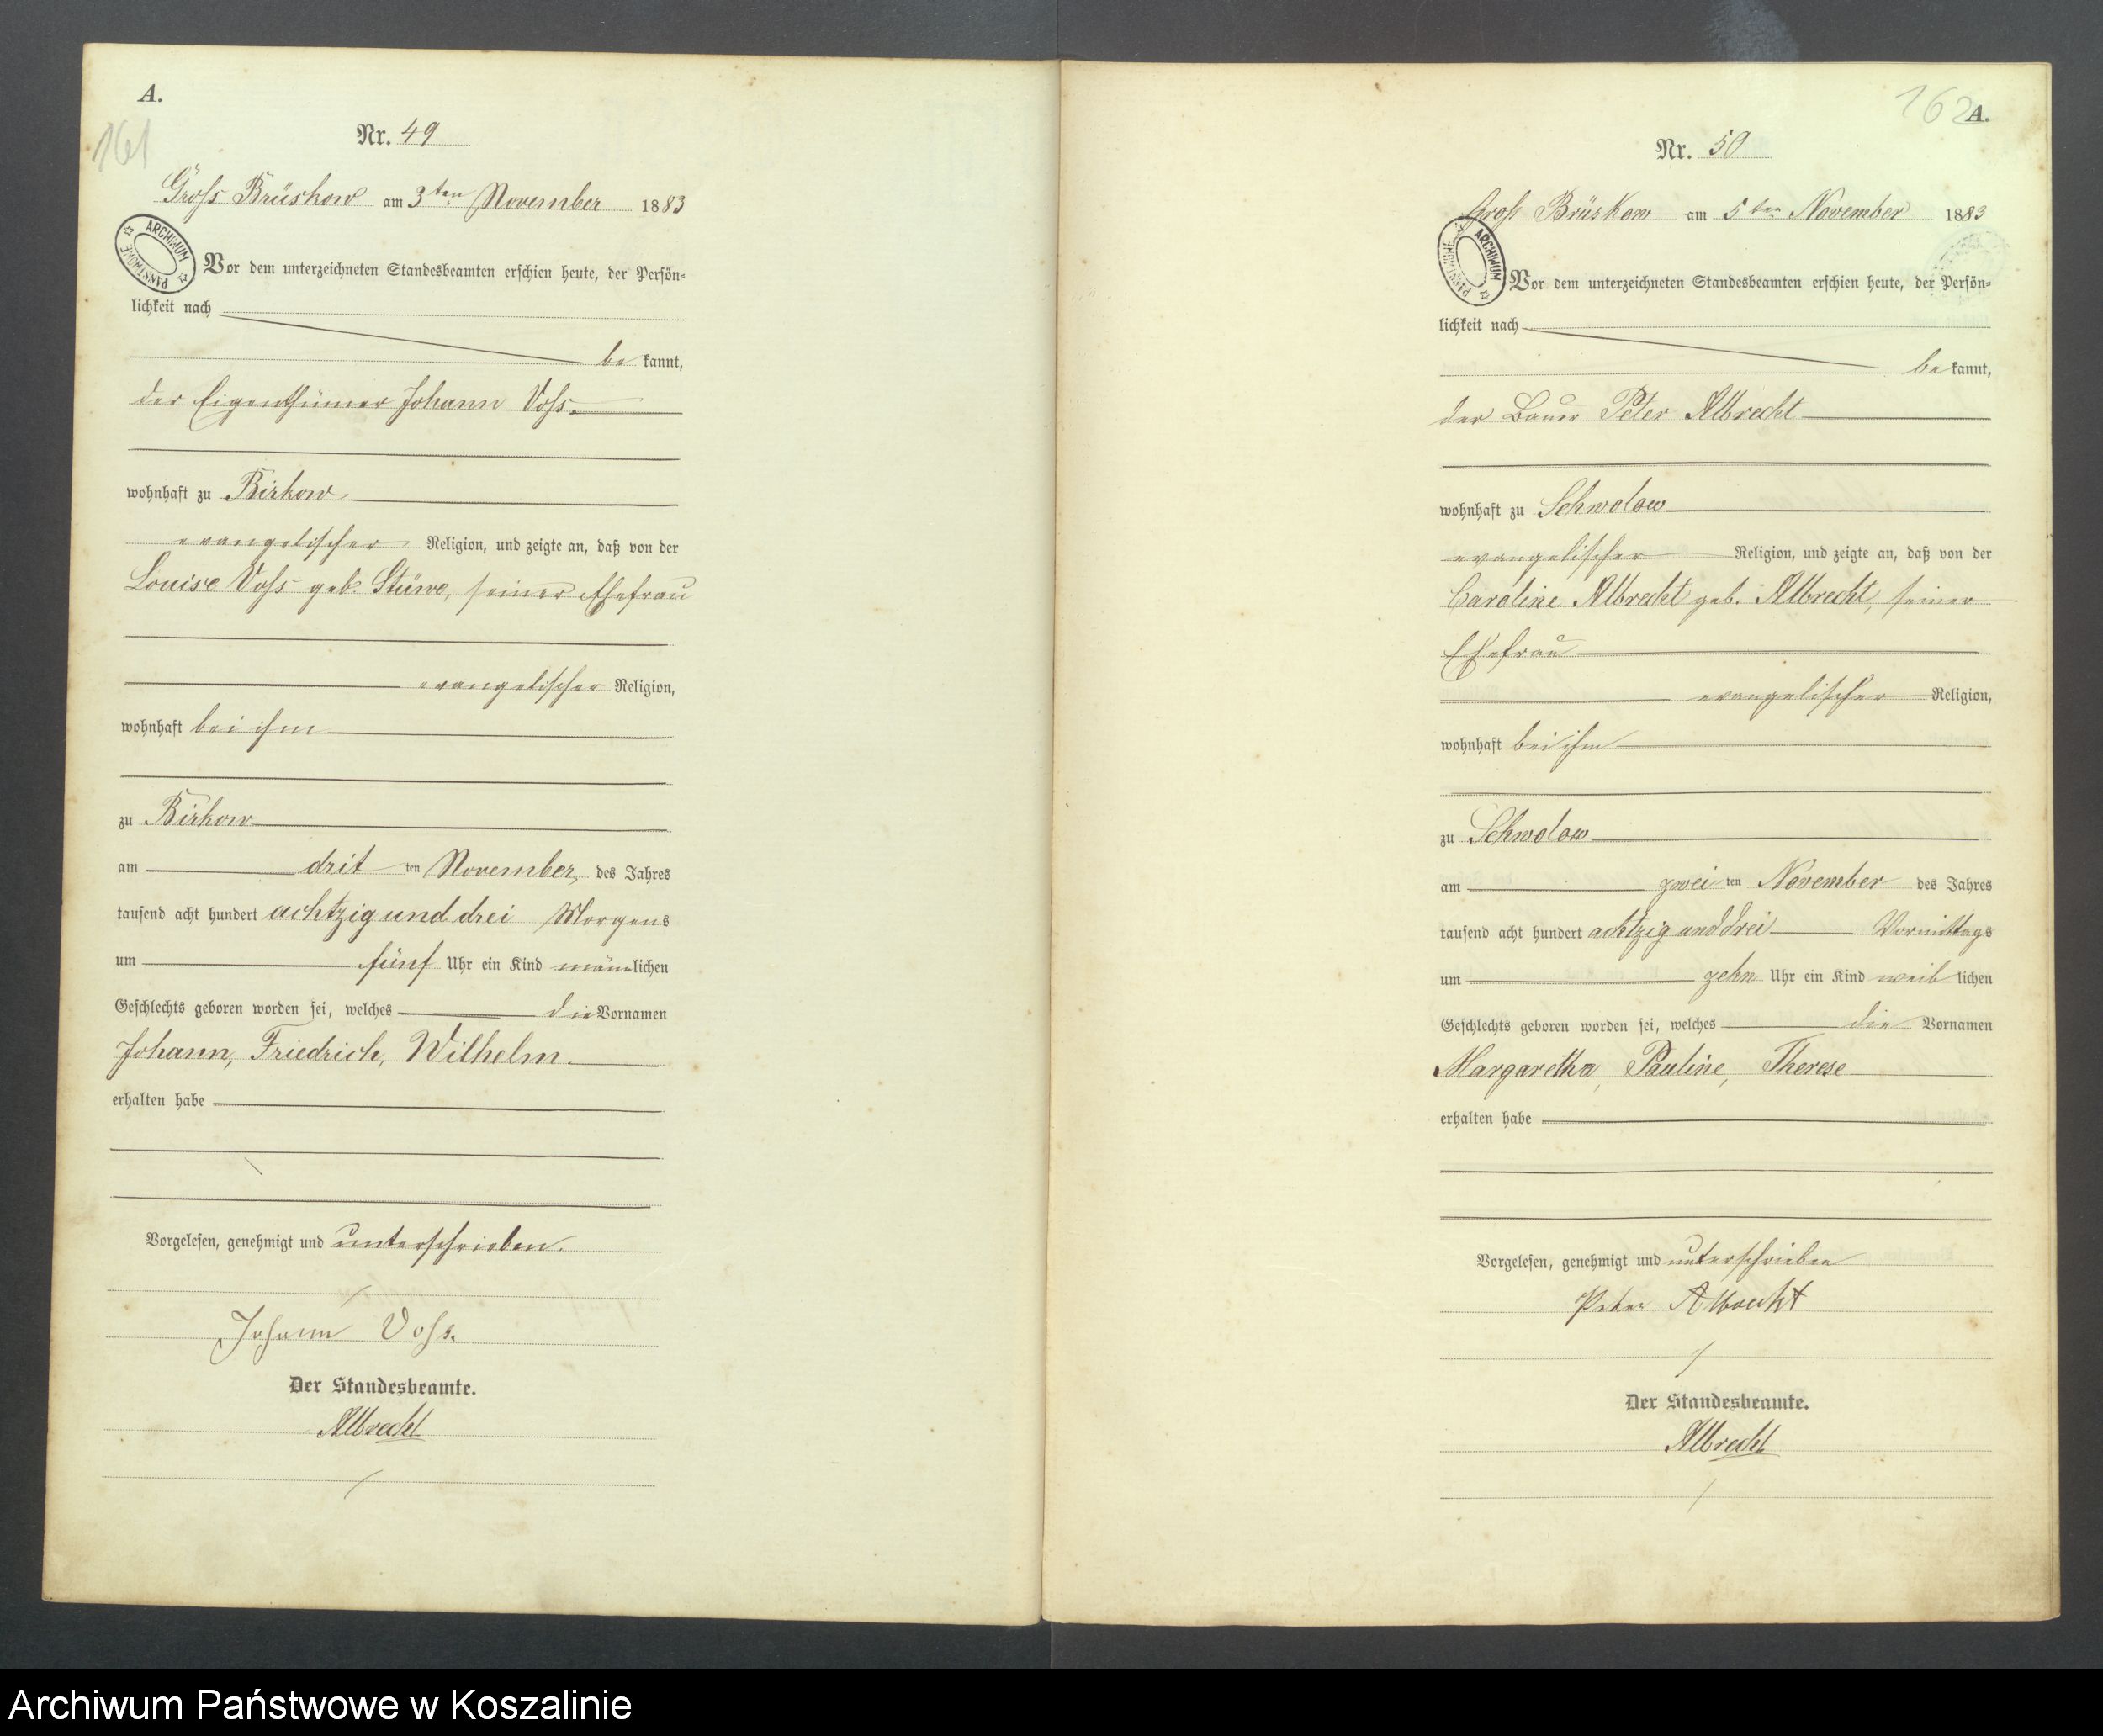 A.
161
Nr. 49
Groß Brüskow am 3ten November 1883
ARCHIWUM PAŃSTWOWE
Vor dem unterzeichneten Standesbeamten erschien heute, der Persön=
lichkeit nach
be kannt,
der Eigenthümer Johann Voss.
wohnhaft zu Birkow
evangelischer Religion, und zeigte an, daß von der
Louise Voss geb. Stüwe, seiner Ehefrau
evangelischer Religion,
wohnhaft bei ihm
zu Birkow
am drit ten November, des Jahres
tausend acht hundert achtzig und drei Morgens
um fünf Uhr ein Kind männlichen
Geschlechts geboren worden sei, welches die Vornamen
Johann, Friedrich, Wilhelm
erhalten habe
Vorgelesen, genehmigt und unterschrieben.
Johann Voss.
Der Standesbeamte.
Albrecht
162
A.
Nr. 50
Groß Brüskow am 5ten November 1883
ARCHIWUM PAŃSTWOWE
Vor dem unterzeichneten Standesbeamten erschien heute, der Persön=
lichkeit nach
be kannt,
der Bauer Peter Albrecht
wohnhaft zu Schwolow
evangelischer Religion, und zeigte an, daß von der
Caroline Albrecht geb. Albrecht, seiner
Ehefrau
evangelischer Religion,
wohnhaft bei ihm
zu Schwolow
am zwei ten November des Jahres
tausend acht hundert achtzig und drei Vormittags
um zehn Uhr ein Kind weib lichen
Geschlechts geboren worden sei, welches die Vornamen
Margaretha, Pauline, Therese
erhalten habe
Vorgelesen, genehmigt und unterschrieben
Peter Albrecht
Der Standesbeamte.
Albrecht
Archiwum Państwowe w Koszalinie